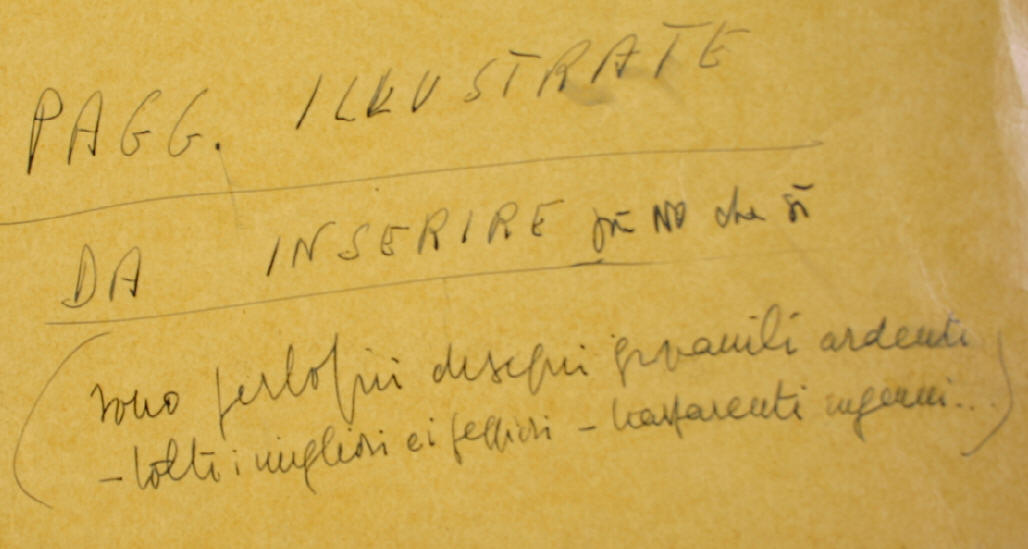 PAGG. ILLUSTRATE
DA INSERIRE più NO che sì
(sono perlopiù disegni giovanili ardenti
- tolti i migliori e i peggiori - trasparenti ingenui...)